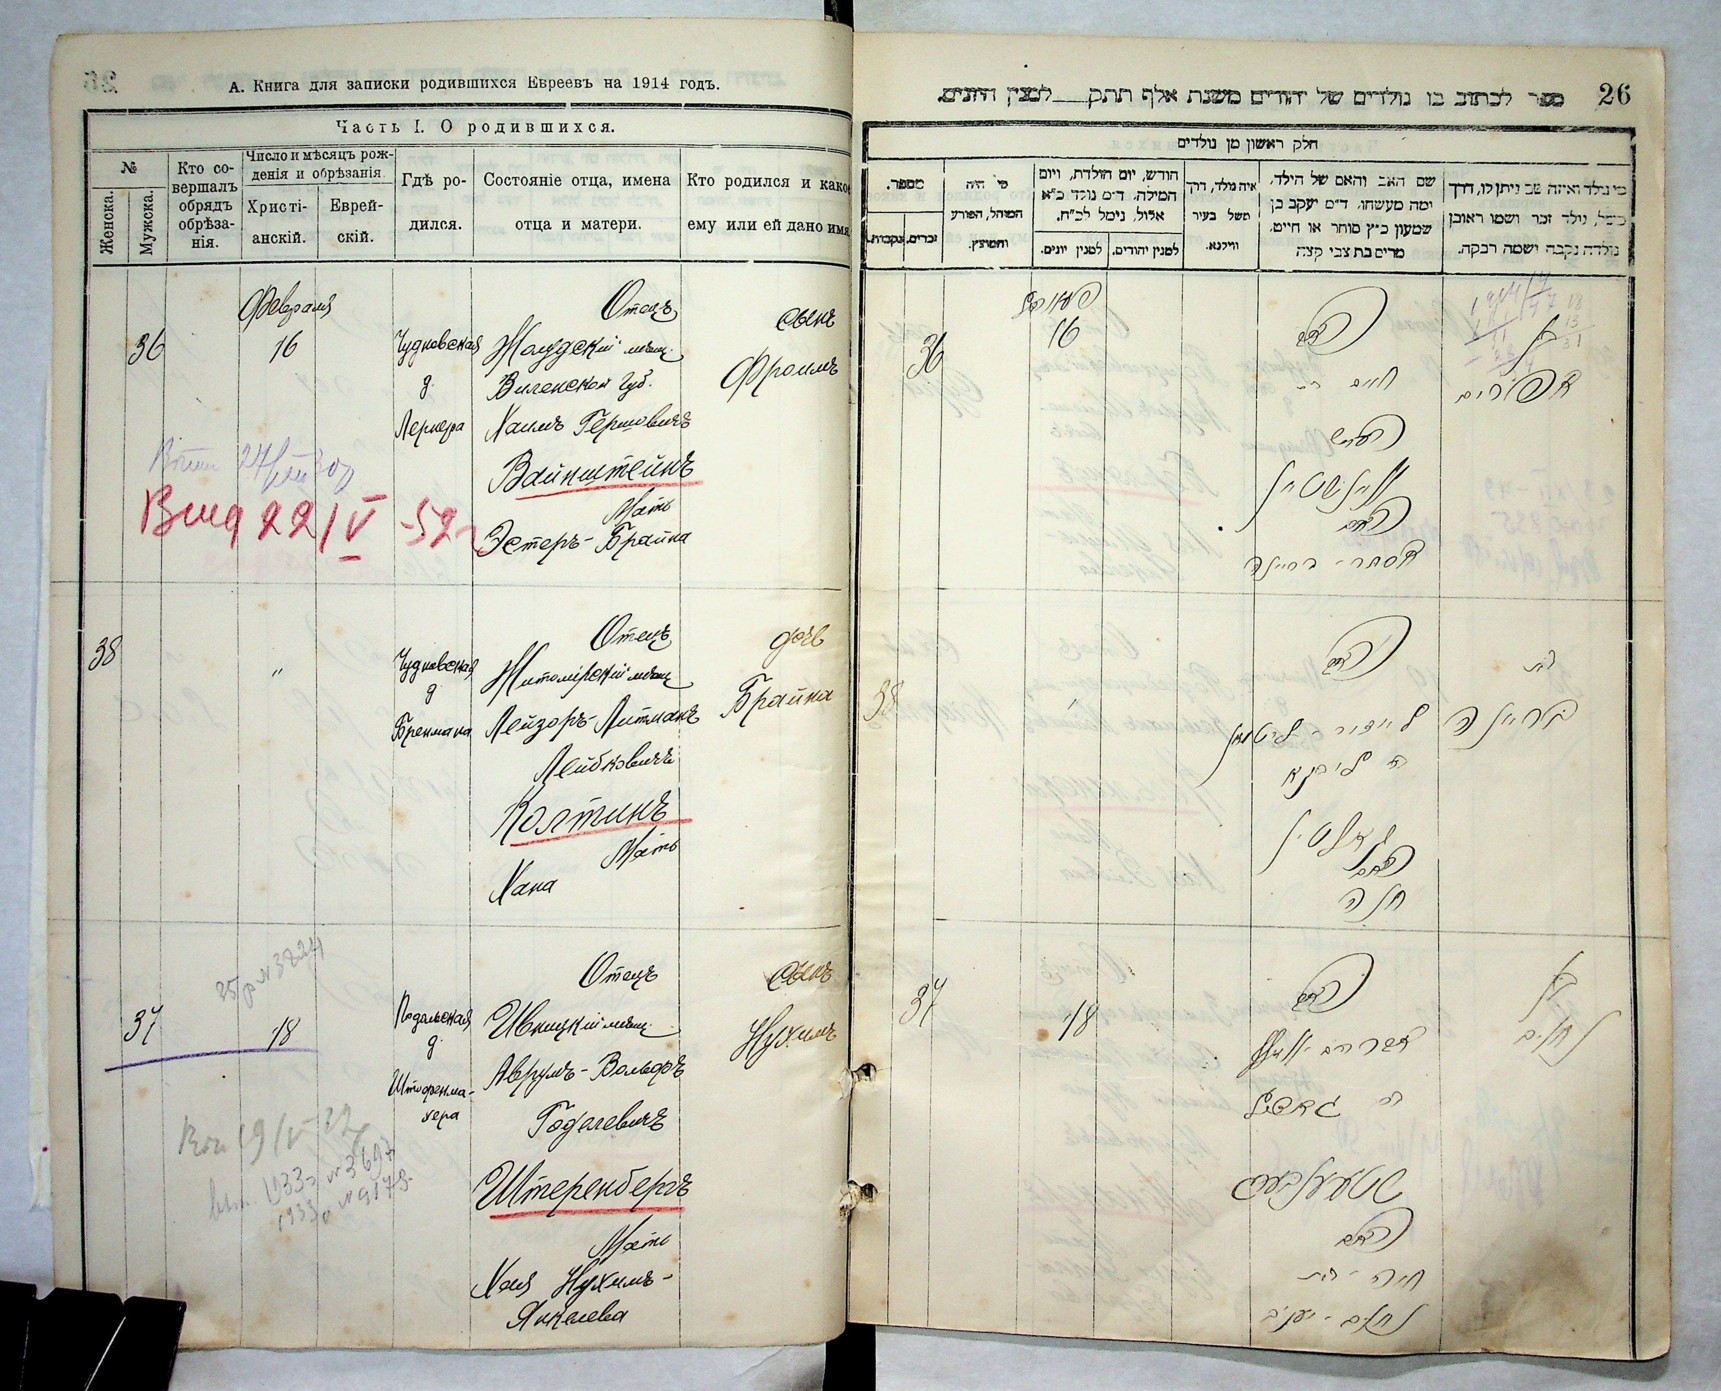 А. Книга для записки родившихся Евреевъ на 1914 годъ.
Часть I. О родившихся.
№
Женска.
Мужска.
Кто со-
вершалъ
обрядъ
обрѣза-
нія.
Число и мѣсяцъ рож-
денія и обрѣзанія.
Христі-
анскій.
Еврей-
скій.
Гдѣ ро-
дился.
Состояніе отца, имена
отца и матери.
Кто родился и какое
ему или ей дано имя
36
Февраля
16
Чудновская
д.
Лернера
Отецъ
Жолудскій мѣщ.
Виленской Губ.
Хаимъ Гершовичъ
Вайнштейнъ
Мать
Эстеръ-Брайна
сынъ
Фроимъ
27/VIII 30
Выд 22/V -52
38
"
Чудновская
д
Бренмана
Отецъ
Житомірскій мѣщ
Лейзоръ-Литманъ
Лейбковичъ
Колтинъ
Мать
Хана
дочь
Брайна
35 р № 3824
37
18
Подольская
д.
Штофенма-
хера
Отецъ
Ивницкій мѣщ.
Аврумъ-Вольфъ
Годелевичъ
Штеренбергъ
Мать
Хая Нухимъ-
Янкелева
сынъ
Нухимъ
19/V
1933 № 3697
1933 № 9173
26
ספר לכתוב בו נולדים של יהודים משנת אלף תתק למנין היונים.
חלק ראשון מן נולדים
מי נולד ואיזה שם ניתן לו, דרך
משל, נולד זכר ושמו ראובן
נולדה נקבה ישמה רבקה.
שם האב והאם של הילד,
ומה מעשהו, ד״מ יעקב בן
שמעון כ״ץ סוחר או חייט,
מרים בת צבי קצה
איה נולד, דרך
משל בעיר
ווילנא.
חודש, יום הולדת, ויום
המילה, ד״מ נולד כ״א
אלול, נימל לכ״ח.
למנין יהודים.
למנין יונים.
מי היה
המוהל, הפורע
והמוצץ.
מספר.
זכרים.
נקבות.
36
16
האב
חיים
הערש
וויינשטיין
האם
אסתר-בריינה
בן
אפרים
38
"
האב
לייזור-ליטמאן
קאלטין
האם
חנה
בת
בריינה
37
18
האב
אברהם-וואלף
שטערנבערג
האם
חיה-בת
נחום-יענקב
בן
נחום